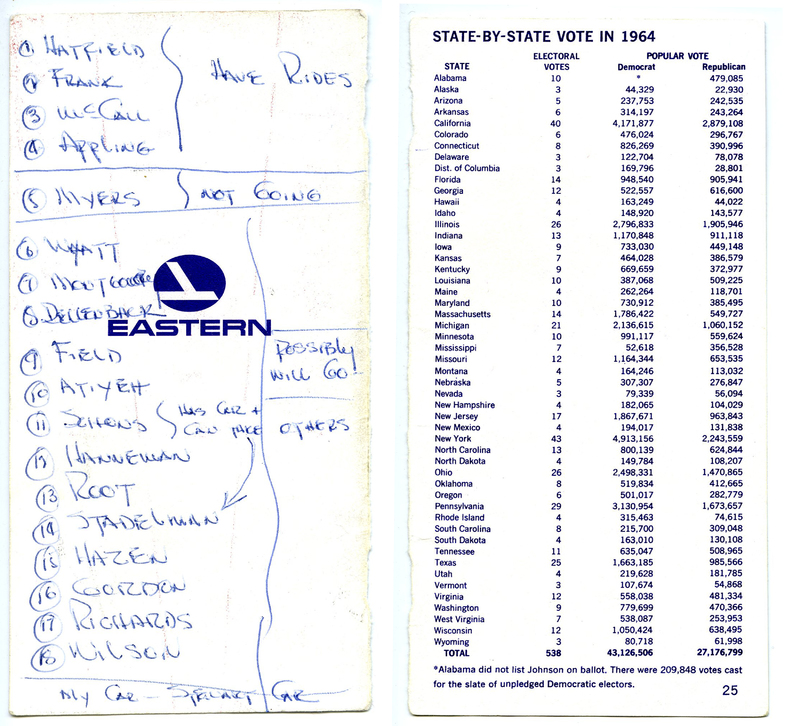 ① HATFIELD
② FRANK
③ McCALL
④ APPLING
HAVE RIDES
⑤ MYERS
NOT GOING
⑥ WYATT
⑦ MONTGOMERY
⑧ DELLENBACK
EASTERN
⑨ FIELD
POSSIBLY
WILL GO
⑩ ATIYEH
⑪ SCHONS
HAS CAR +
CAN TAKE OTHERS
⑫ HANNEMAN
⑬ ROOT
⑭ STADELMAN
⑮ HAZEN
⑯ GORDON
⑰ RICHARDS
⑱ WILSON
MY CAR – STEWART CAR
STATE-BY-STATE VOTE IN 1964
ELECTORAL POPULAR VOTE
STATE VOTES Democrat Republican
Alabama 10 * 479,085
Alaska 3 44,329 22,930
Arizona 5 237,753 242,535
Arkansas 6 314,197 243,264
California 40 4,171,877 2,879,108
Colorado 6 476,024 296,767
Connecticut 8 826,269 390,996
Delaware 3 122,704 78,078
Dist. of Columbia 3 169,796 28,801
Florida 14 948,540 905,941
Georgia 12 522,557 616,600
Hawaii 4 163,249 44,022
Idaho 4 148,920 143,577
Illinois 26 2,796,833 1,905,946
Indiana 13 1,170,848 911,118
Iowa 9 733,030 449,148
Kansas 7 464,028 386,579
Kentucky 9 669,659 372,977
Louisiana 10 387,068 509,225
Maine 4 262,264 118,701
Maryland 10 730,912 385,495
Massachusetts 14 1,786,422 549,727
Michigan 21 2,136,615 1,060,152
Minnesota 10 991,117 559,624
Mississippi 7 52,618 356,528
Missouri 12 1,164,344 653,535
Montana 4 164,246 113,032
Nebraska 5 307,307 276,847
Nevada 3 79,339 56,094
New Hampshire 4 182,065 104,029
New Jersey 17 1,867,671 963,843
New Mexico 4 194,017 131,838
New York 43 4,913,156 2,243,559
North Carolina 13 800,139 624,844
North Dakota 4 149,784 108,207
Ohio 26 2,498,331 1,470,865
Oklahoma 8 519,834 412,665
Oregon 6 501,017 282,779
Pennsylvania 29 3,130,954 1,673,657
Rhode Island 4 315,463 74,615
South Carolina 8 215,700 309,048
South Dakota 4 163,010 130,108
Tennessee 11 635,047 508,965
Texas 25 1,663,185 985,566
Utah 4 219,628 181,785
Vermont 3 107,674 54,868
Virginia 12 558,038 481,334
Washington 9 779,699 470,366
West Virginia 7 538,087 253,953
Wisconsin 12 1,050,424 638,495
Wyoming 3 80,718 61,998
TOTAL 538 43,126,506 27,176,799
*Alabama did not list Johnson on ballot. There were 209,848 votes cast
for the slate of unpledged Democratic electors.
25